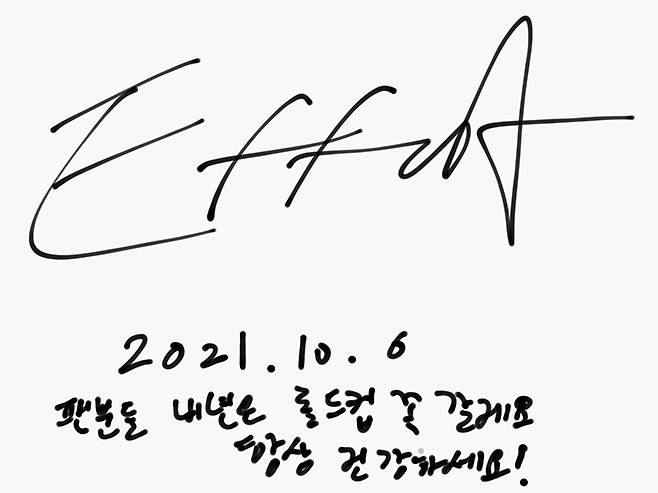 Effort
2021.10.6
팬분들 내년은 롤드컵 꼭 갈게요
항상 건강하세요!